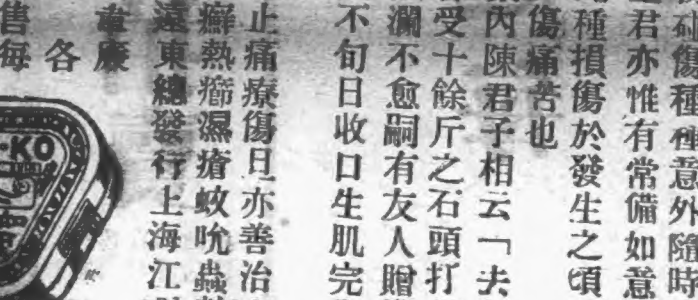 傷種種意外隨時
君亦惟有常備如意
種損傷於發生之頃
傷痛苦也
內陳君子相云「去
受十餘斤之石頭打
瀾不愈嗣有友人贈
不旬日收口生肌完
止痛療傷且亦善治
癬熱癤濕瘡蚊吮蟲
遠東總發行上海江
各
售每
KO